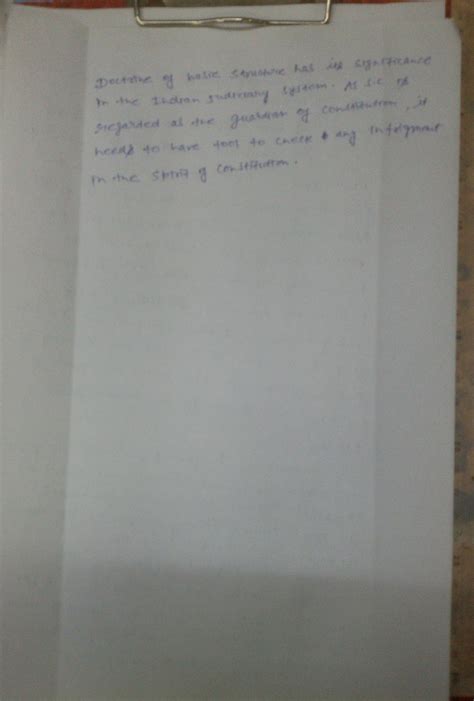 Doctrine of basic structure has its significance
in the Indian judiciary system. As S.C. is
regarded as the guardian of constitution, it
needs to have tool to check any
in the spirit of constitution.